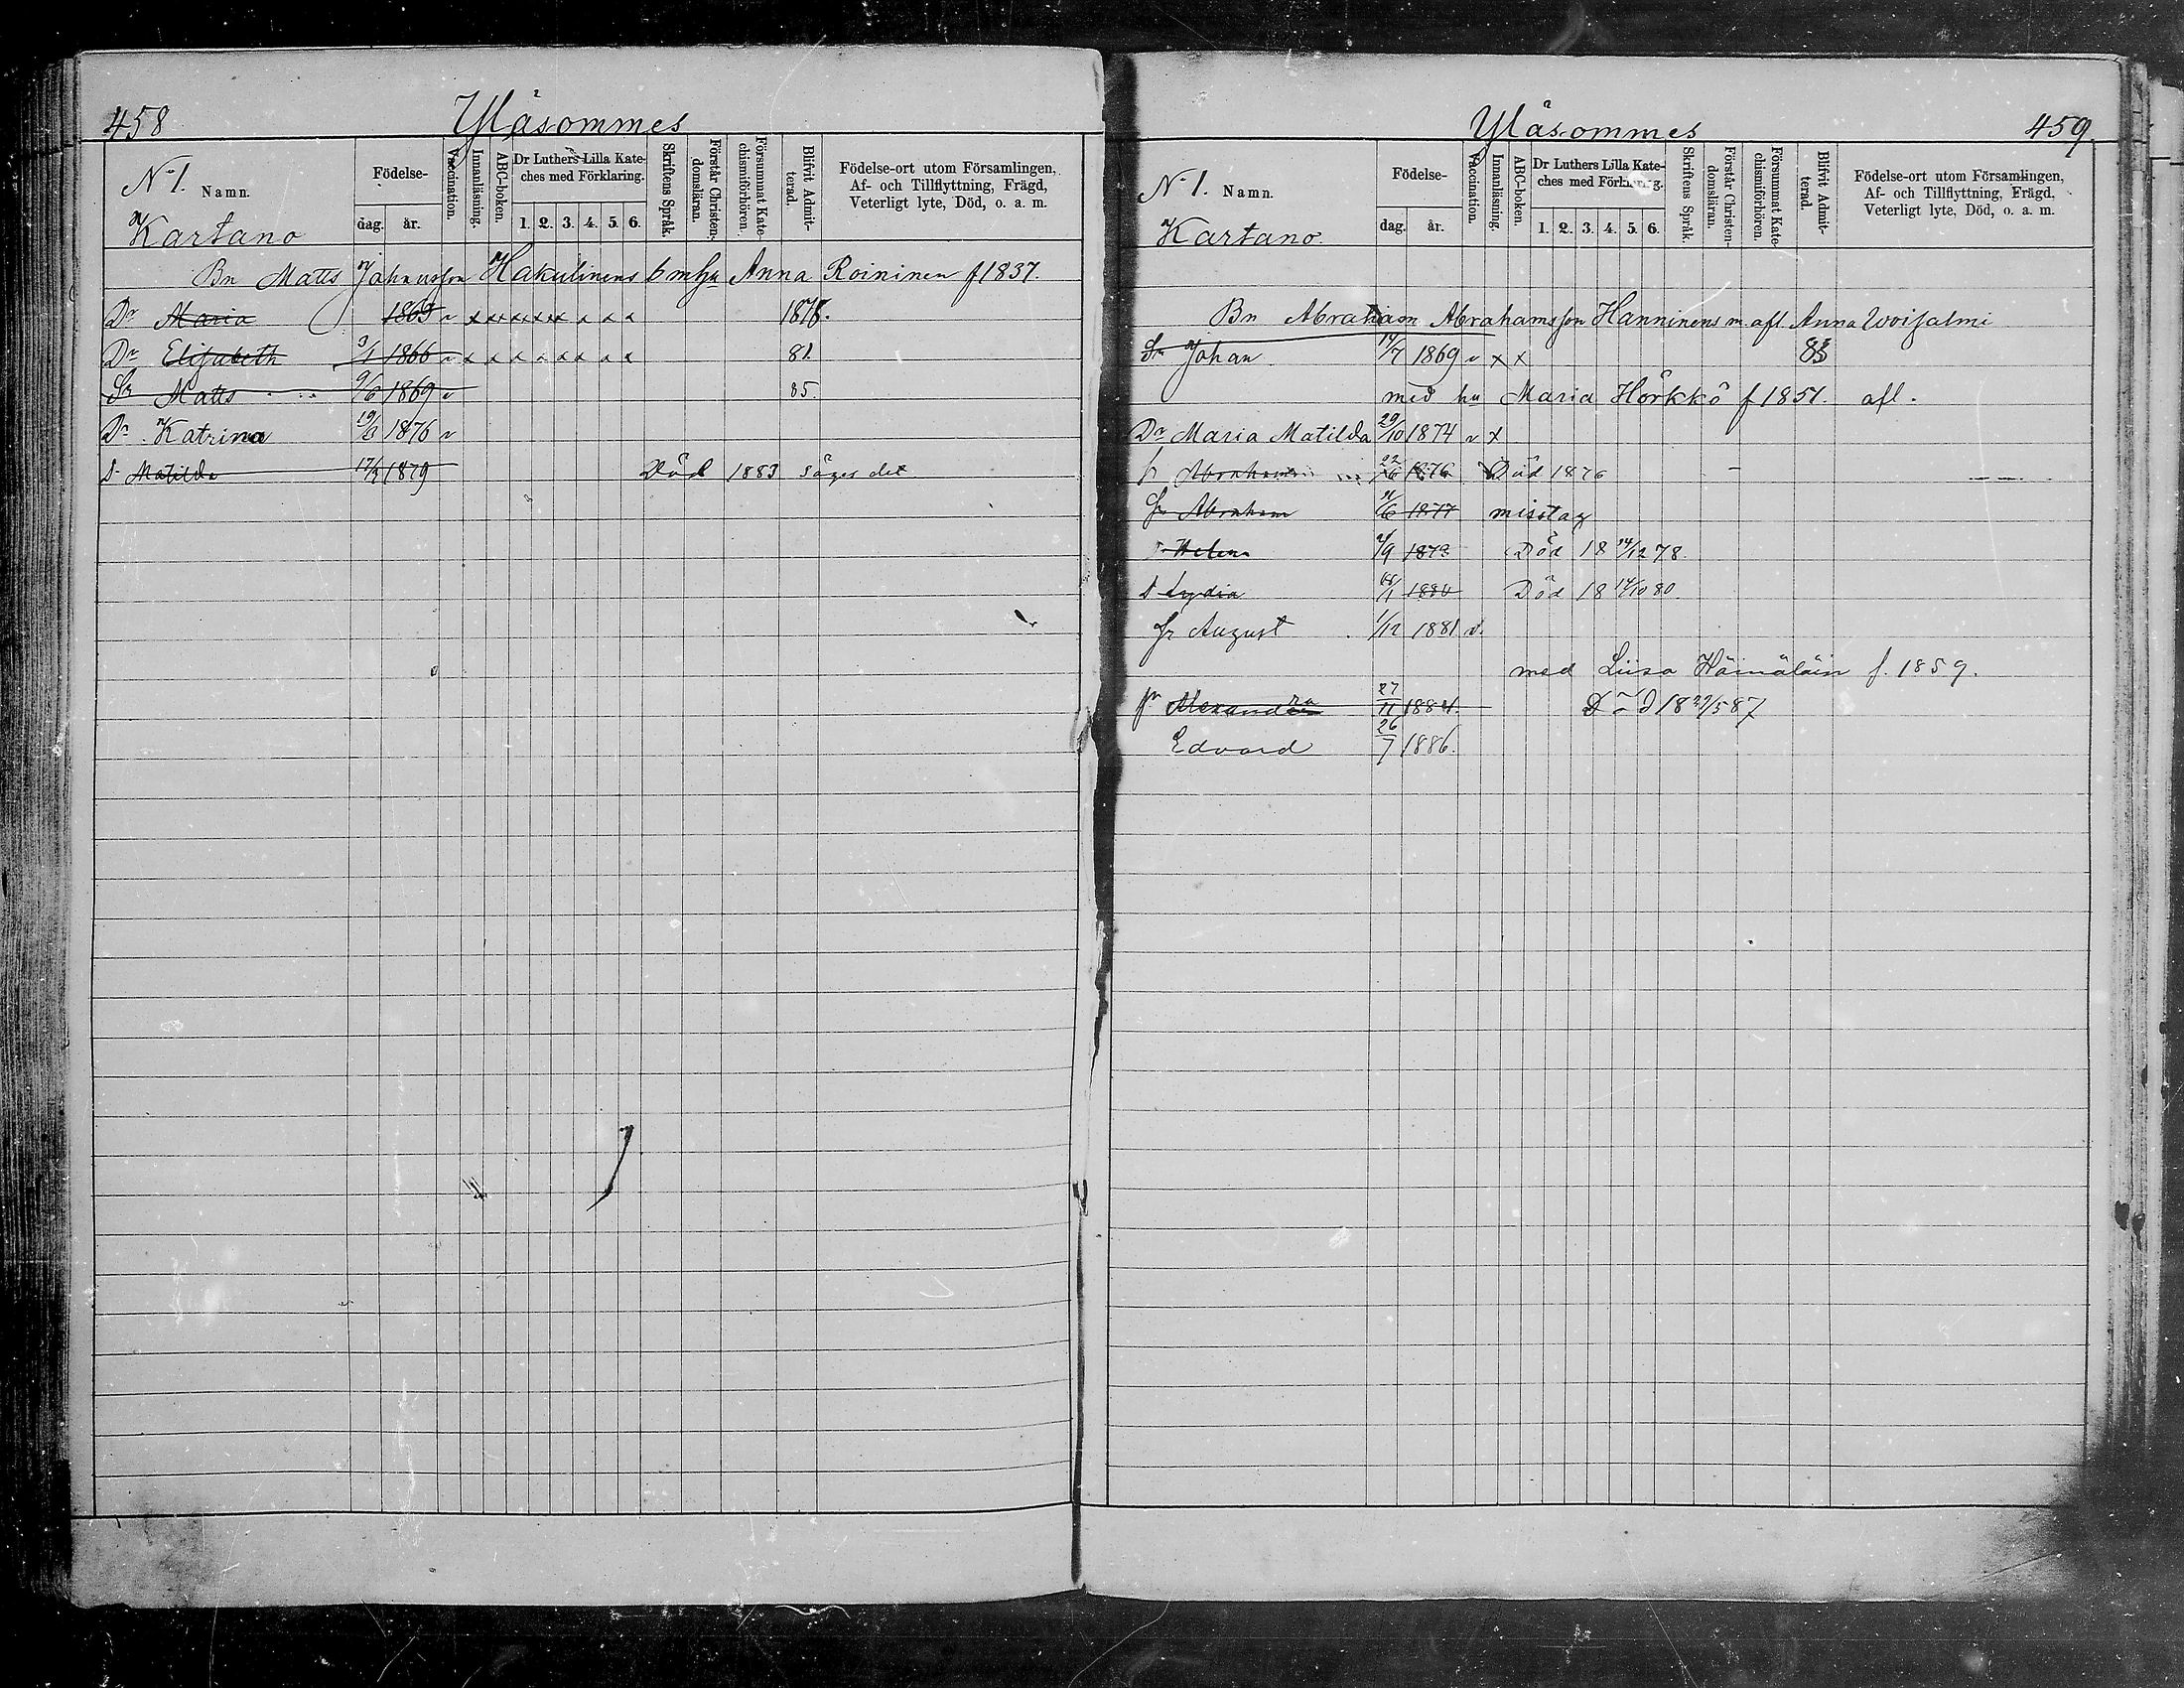 458
Yläsommes
N 1. Namn.
Kartano
Födelse-
dag. år.
Vaccination.
Innanläsning.
ABC-boken.
Dr Luthers Lilla Kate-
ches med Förklaring.
1. 2. 3. 4. 5. 6.
Skriftens Språk.
Förstår Christen-
domsläran.
Försummat Kate-
chismiförhören.
Blifvit Admit-
terad.
Födelse-ort utom Församlingen,
Af- och Tillflyttning, Frägd,
Veterligt lyte, Död, o. a. m.
Bn Matts Johansson Hakulinens b m hu Anna Roininen f 1837.
Dr Maria 1863 v x x x x x x x x x x 1878.
Dr Elisabeth 3/1 1866 v x x x x x x x x 81.
Sn Matts 9/6 1869 v 85.
Dr Katrina 19/3 1876 v
d. Matilda 17/3 1879 Död 1883 säges det
Yläsommes
459.
N 1. Namn.
Kartano.
Födelse-
dag. år.
Vaccination.
Innanläsning.
ABC-boken.
Dr Luthers Lilla Kate-
ches med Förklaring.
1. 2. 3. 4. 5. 6.
Skriftens Språk.
Förstår Christen-
domsläran.
Försummat Kate-
chismiförhören.
Blifvit Admit-
terad.
Födelse-ort utom Församlingen,
Af- och Tillflyttning, Frägd,
Veterligt lyte, Död, o. a. m.
Bn Abraham Abrahamsson Hänninens m. afl. Anna Woijalmi
Sn Johan 14/7 1869 v x x 83
med hu Maria Hörkkö f 1851. afl.
Dr Maria Matilda 29/10 1874 v x
Abraham 1876 Död 1876
Abraham 1877 misstag
Helena 2/9 1873 Död 18 14/12 78.
d Lydia 1880 Död 18 14/10 80.
Sn August 1/12 1881 v.
med Liisa Hämäläin f. 1859.
Alexandra 27/11 1884 Död 18 29/5 87
Edvard 26/7 1886.